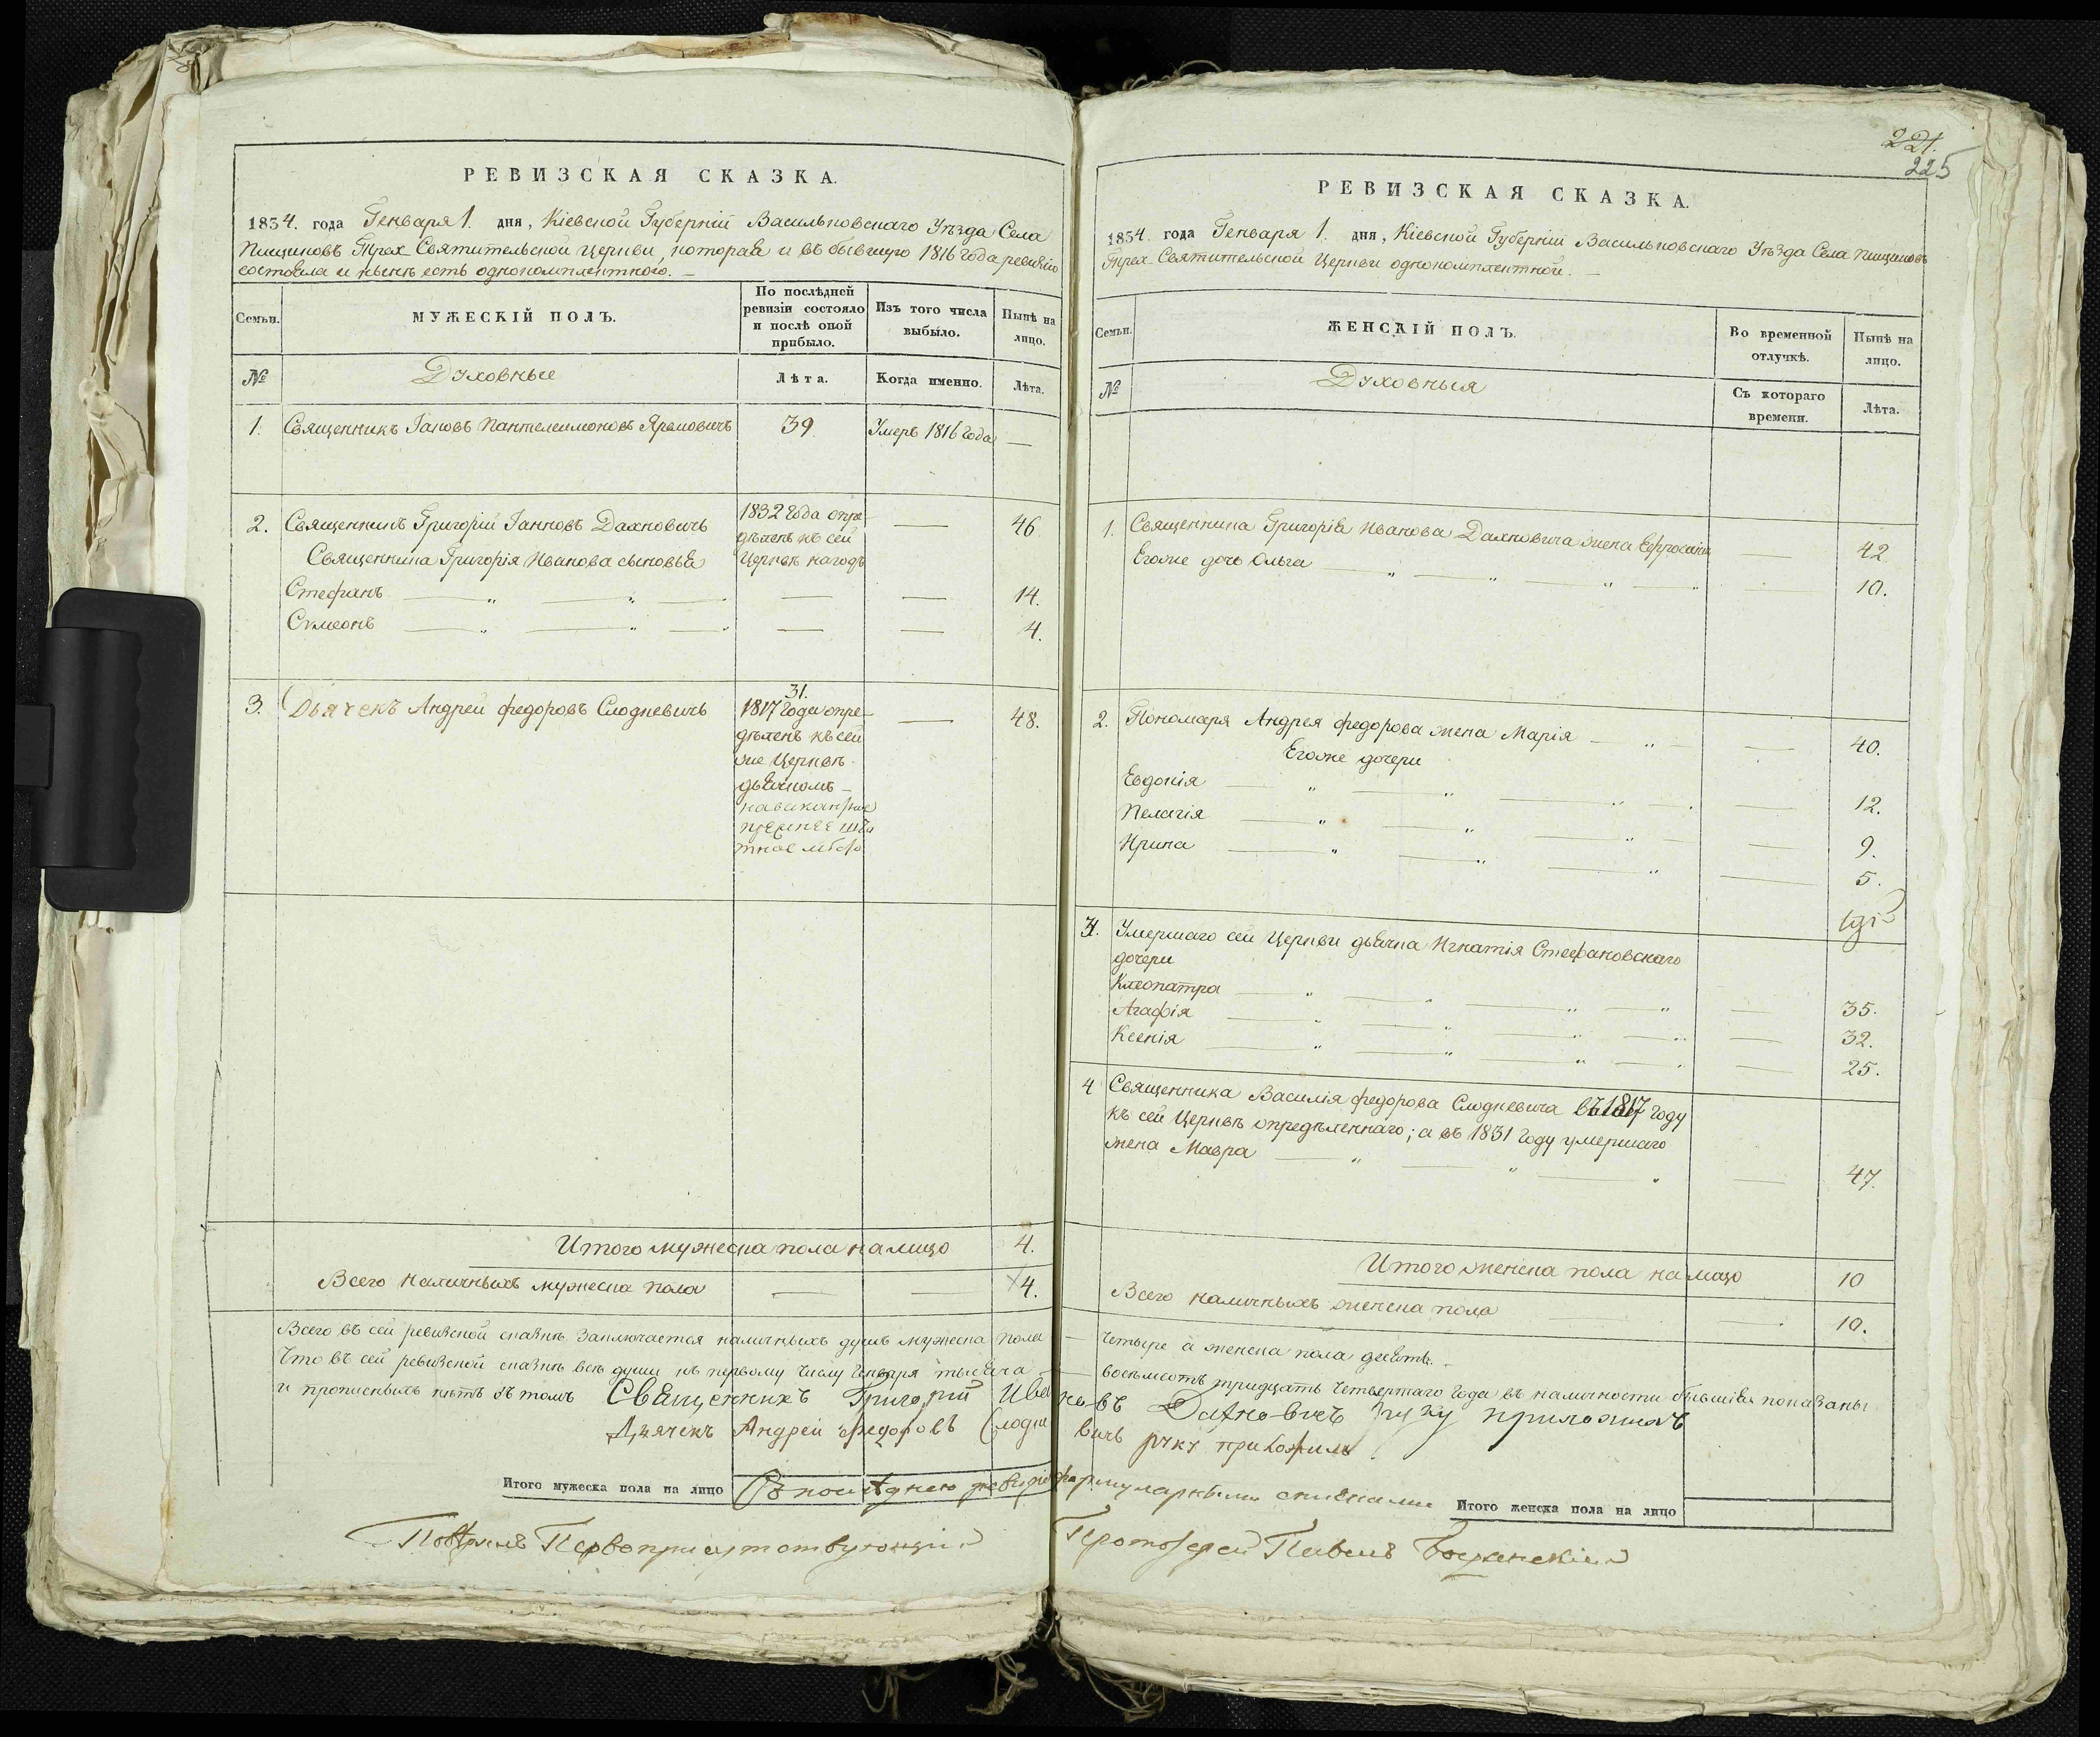 РЕВИЗСКАЯ СКАЗКА.
1834. года Генваря 1. дня, Кіевской Губерніи Васильковскаго Уѣзда Села
Пищиковъ Трех Святительской Церкви, которая и въ бывшую 1816 года ревизію
состояла и нынѣ есть однокомплектною. —
Семьи.
МУЖЕСКІЙ ПОЛЪ.
По послѣдней
ревизіи состояло
и послѣ оной
прибыло.
Изъ того числа
выбыло.
Нынѣ на
лицо.
№
Духовные
Лѣта.
Когда именно.
Лѣта.
1. Священникъ Іаковъ Пантелеимоновъ Яремовичъ 39 Умеръ 1816 года —
2. Священникъ Григорій Іанновъ Дахновичъ 1832 года опре- — 46
дѣленъ къ сей
Священника Григорія Иванова сыновья Церквѣ
Стефанъ — — 14.
Симеонъ — — 4.
31.
3. Дьячекъ Андрей Федоровъ Слодкевичъ 1817 года опре- — 48.
дѣленъ къ сей
же Церквѣ
дьячкомъ —
Итого мужеска пола на лицо 4.
Всего наличныхъ мужеска пола — — 4.
Всего въ сей ревизской сказкѣ заключается наличныхъ душъ мужеска пола —
Что въ сей ревизской сказкѣ всѣ души къ первому числу Генваря тысяча —
и прописныхъ нѣтъ въ томъ Священникъ Григорій Ива
Дячекъ Андрей Федоровъ Слодке
Итого мужеска пола на лицо
Съ послѣднею ревизіею
Повѣрялъ Первоприсутствующій
221.
225
РЕВИЗСКАЯ СКАЗКА.
1834 года Генваря 1. дня, Кіевской Губерніи Васильковскаго Уѣзда Села Пищиковъ
Трех-Святительской Церкви однокомплектной. —
Семьи.
ЖЕНСКІЙ ПОЛЪ.
Во временной
отлучкѣ.
Нынѣ на
лицо.
№
Духовныя
Съ котораго
времени.
Лѣта.
1. Священника Григорія Иванова Дахновича жена Ефросинія — 42
Егоже дочь Ольга — 10.
2. Пономаря Андрея Федорова жена Марія — 40.
Егоже дочери
Евдокія — 12.
Пелагія — 9.
Ирина — 5.
3. Умершаго сей Церкви дьячка Игнатія Стефановскаго
дочери
Клеопатра — 35.
Агафія — 32.
Ксенія — 25.
4 Священника Василія Федорова Слодкевича въ 1817 году
къ сей Церквѣ опредѣленнаго; а въ 1831 году умершаго
жена Мавра — 47.
Итого женска пола на лицо 10
Всего наличныхъ женска пола — 10.
— четыре а женска пола десять. —
— восемьсотъ тридцать четвертаго года въ наличности бывшія показаны
новъ Дахновичъ руку приложилъ
вичъ руку приложилъ
формулярными списками
Итого женска пола на лицо
Протоіерей Павелъ